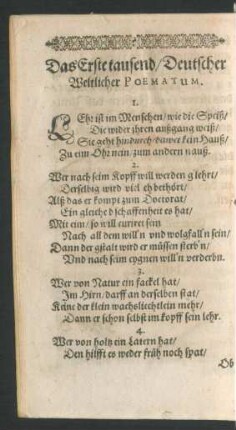 Das Erste tausend/ Deutscher
Weltlicher POEMATUM.
1.
LEhr ist im Menschen/ wie die Speiß/
Die wider ihren außgang weiß/
Sie geht hindurch kein Hauß/
Zu eim Ohr nein/ zum andern nauß.
2.
Wer nach seim Kopff will werden glehrt/
Derselbig wird viel eh bethört/
Alß das er kompt zum Doctorat/
Ein gleiche bschaffenheit es hat/
Mit eim/ so will curiret sein
Nach all dem will'n und wolgfall'n sein/
Dann der gstalt wird er müssen sterb'n/
Und nach seim eygnen will'n verderbn.
3.
Wer von Natur ein fackel hat/
Im Hirn/ darff an derselben stat/
Keine der klein wachsliechtlein mehr/
Dann er schon selbst im kopff sein lehr.
4.
Wer von holtz ein Latern hat/
Den hilfft es weder früh noch spat/
Ob